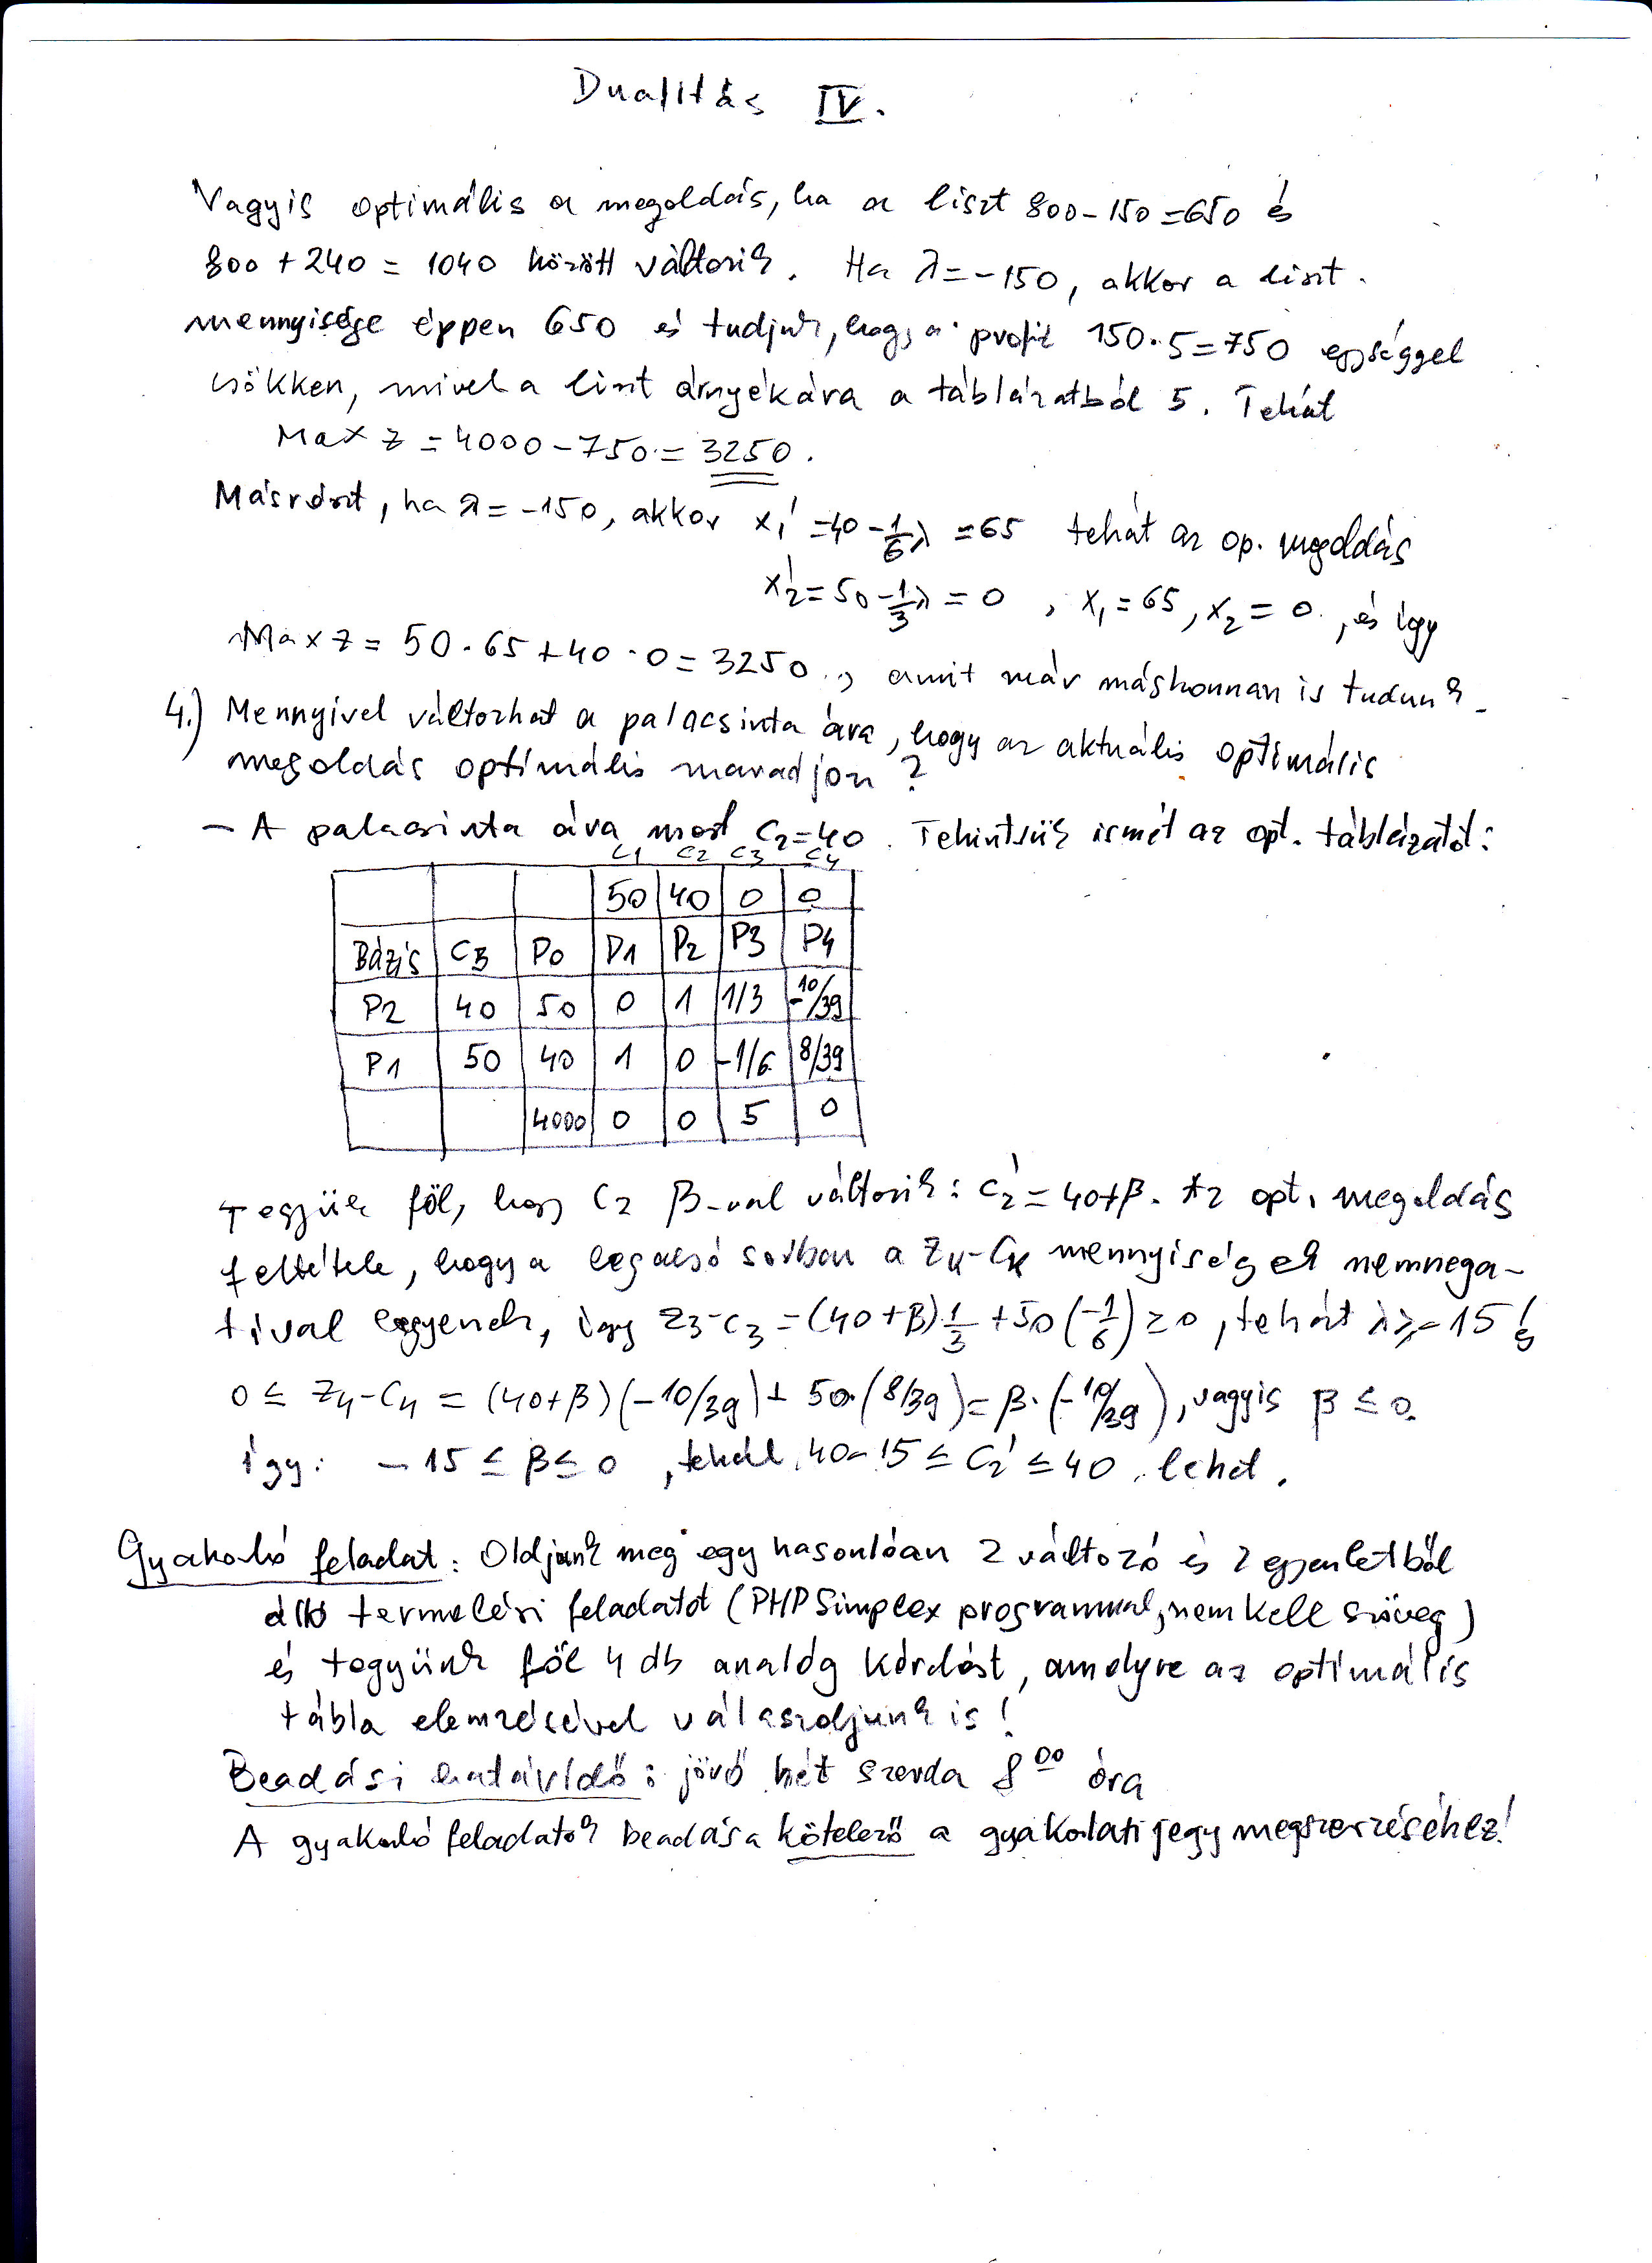 Dualitás IV.
Vagyis optimális a megoldás, ha a liszt 800-150=650 és
800+240=1040 között változik. Ha λ=-150, akkor a liszt
mennyisége éppen 650 és tudjuk, hogy a profit 150·5=750 egységgel
csökken, mivel a liszt árnyékára a táblázatból 5. Tehát
Max z = 4000-750 = 3250.
Másrészt, ha λ=-150, akkor x₁' = 40-1/6 λ = 65 tehát az op. megoldás
x₂' = 50-1/3 λ = 0 , x₁=65, x₂=0 , és így
Max z = 50·65+40·0=3250, amit már máshonnan is tudunk.
4.) Mennyivel változhat a palacsinta ára, hogy az aktuális optimális
megoldás optimális maradjon?
- A palacsinta ára most c₂=40. Tekintsük ismét az opt. táblázatot:
c1 c2 c3 c4
50 40 0 0
Bázis CB P0 P1 P2 P3 P4
P2 40 50 0 1 1/3 -10/39
P1 50 40 1 0 -1/6 8/39
4000 0 0 5 0
Tegyük föl, hogy c₂ β-val változik: c₂' = 40+β. Az opt. megoldás
feltétele, hogy a legalsó sorban a zₖ-cₖ mennyiségek nemnega-
tívak legyenek, így z₃-c₃ = (40+β)·1/3 + 50(-1/6) ≥ 0, tehát λ ≥ -15 és
0 ≤ z₄-c₄ = (40+β)(-10/39) + 50·(8/39) = β·(-10/39), vagyis β ≤ 0.
így: -15 ≤ β ≤ 0 , tehát 40-15 ≤ c₂' ≤ 40 lehet.
Gyakorló feladat: Oldjunk meg egy hasonlóan 2 változó és 2 egyenletből
álló termelési feladatot (PHPSimplex programmal, nem kell szöveg)
és tegyünk föl 4 db analóg kérdést, amelyre az optimális
tábla elemzésével válaszoljunk is!
Beadási határidő: jövő hét szerda 8⁰⁰ óra
A gyakorló feladatok beadása kötelező a gyakorlati jegy megszerzéséhez!